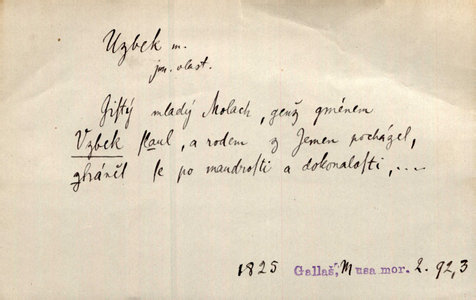 Uzbek m.
jm. vlast.
Jistý mladý Molach, genž gménem
Vzbek slaul, a rodem z Jemen pocházel,
sháněl se po maudrosti a dokonalosti,...
1825 Gallaš, Musa mor. 2. 92,3